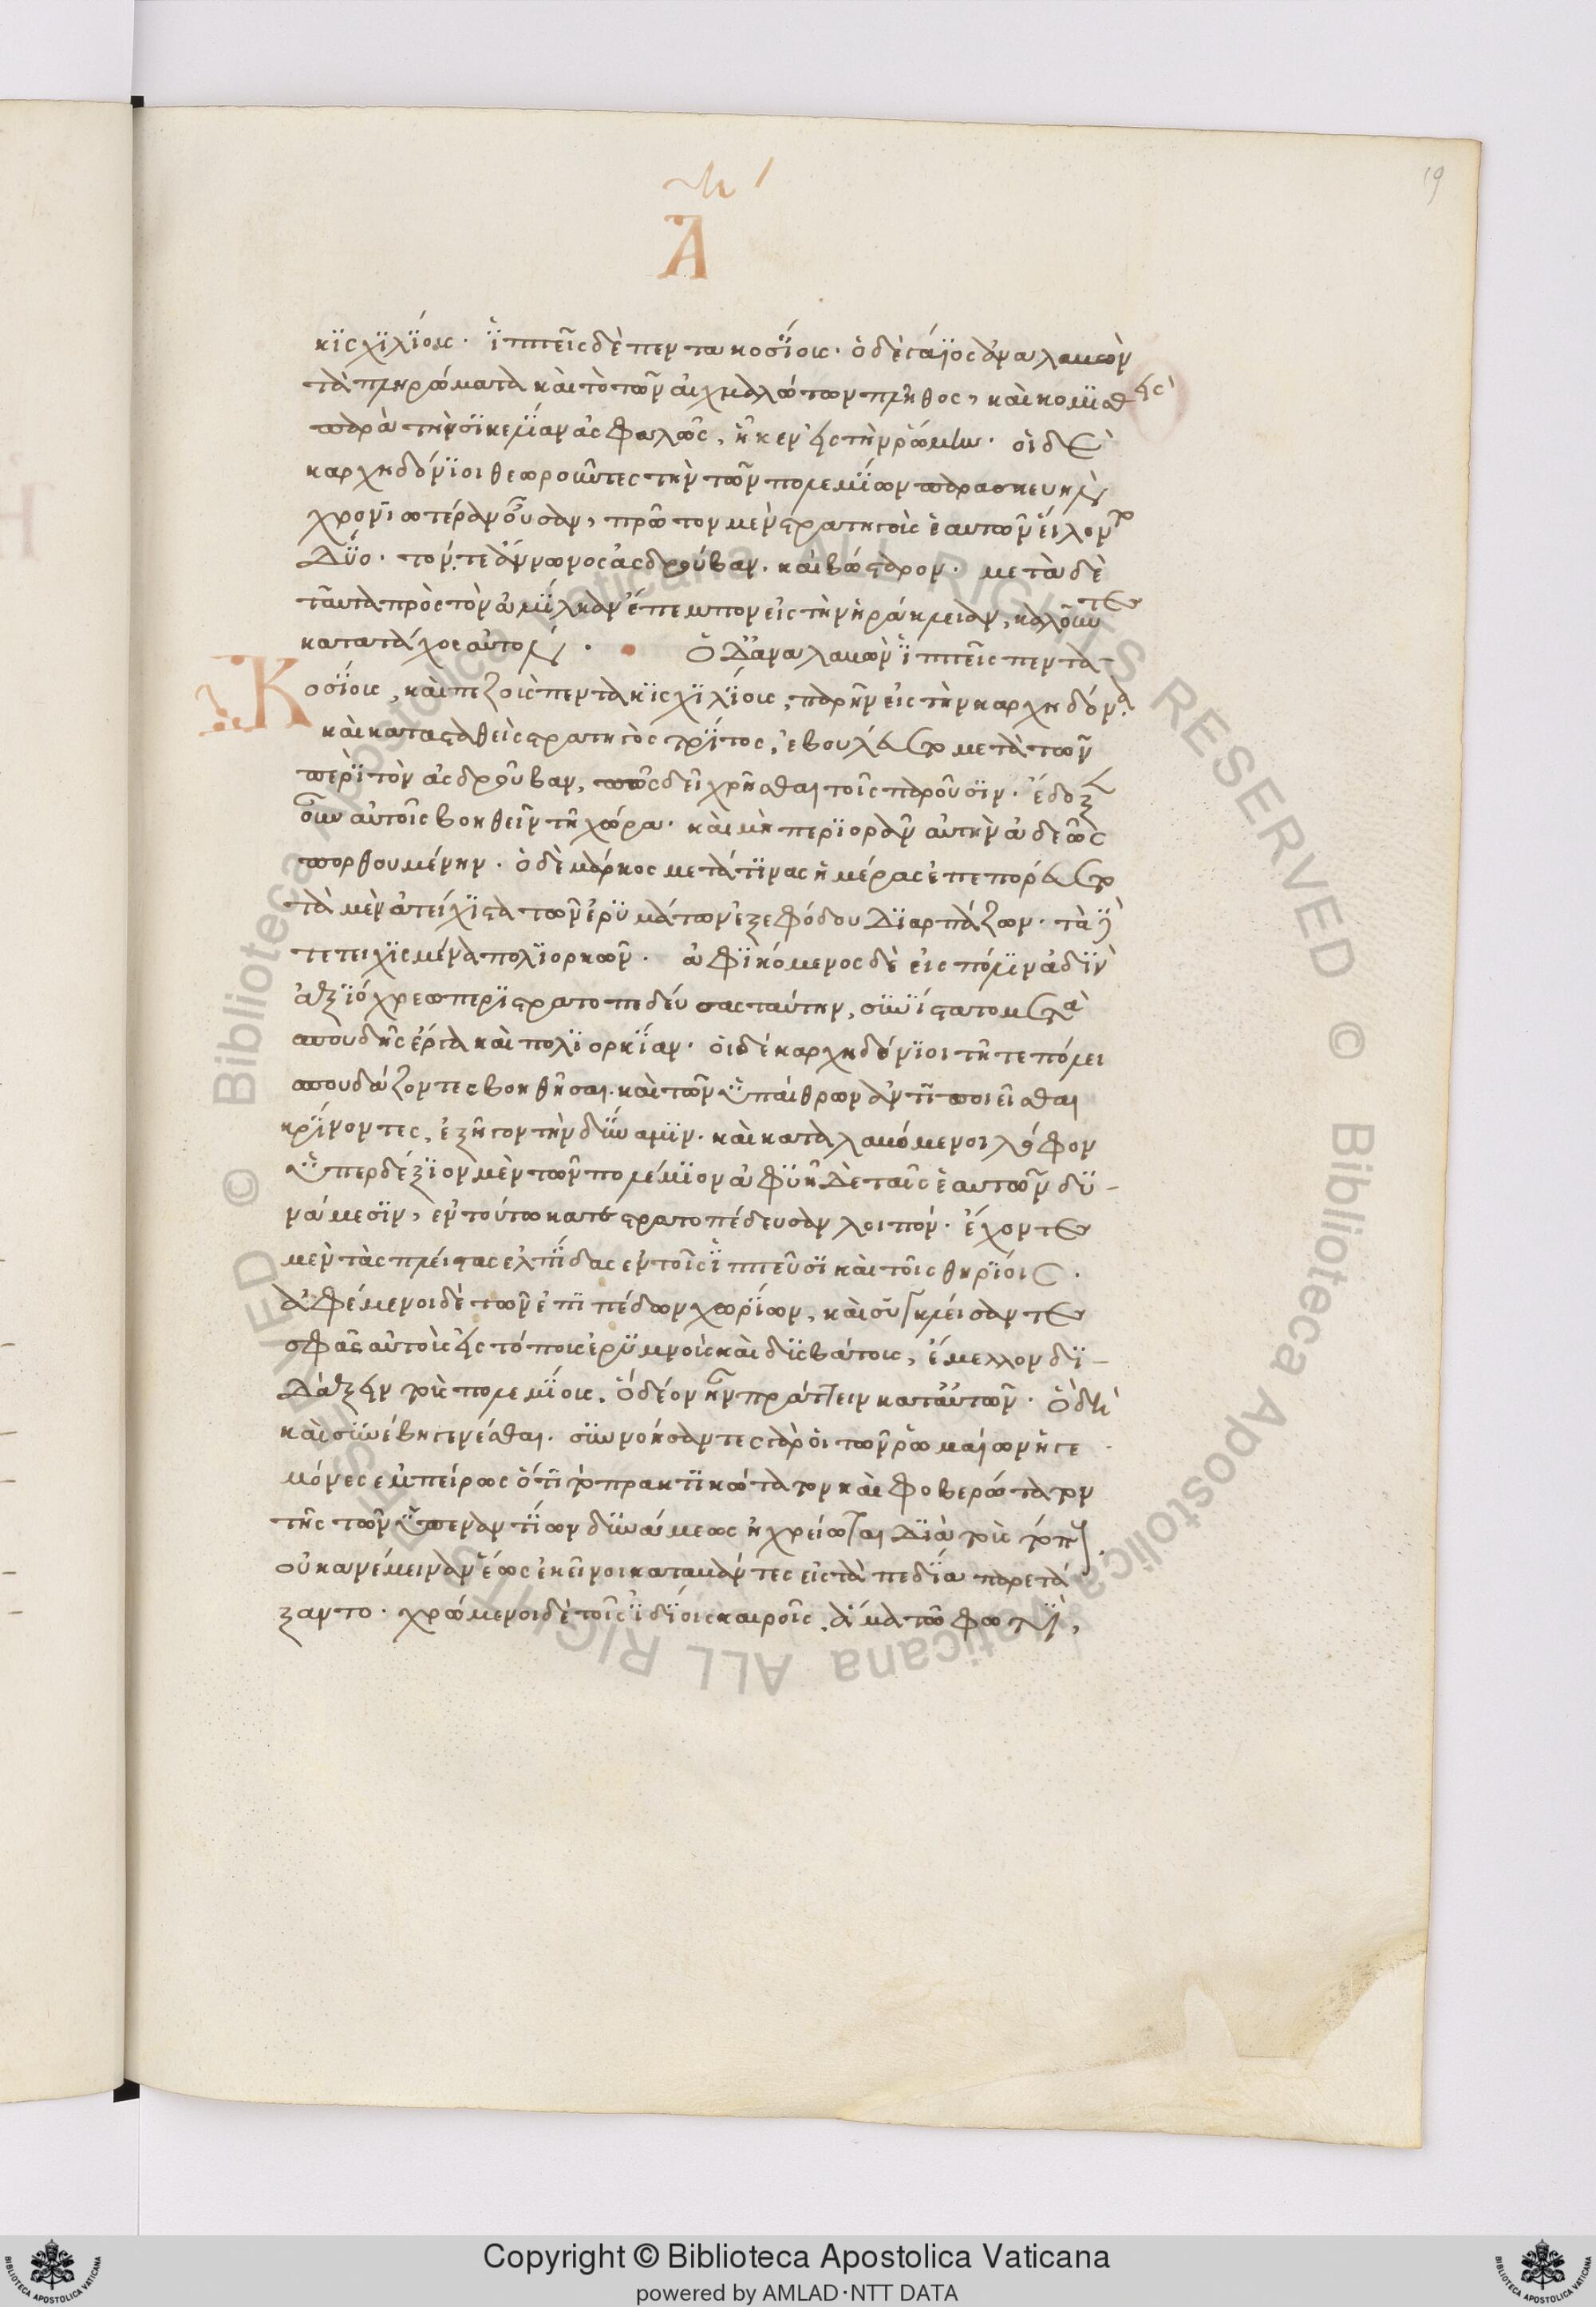 19
Α
κϊσχϊλΐους· ἵππεῖς δὲ πεντακοσΐους· ὁ δὲ γάϊος ἀναλαβὼν
τὰ πληρώματα καὶ τὸ τῶν αἰχμαλώτων πλῆθος, καὶ κομισθεὶς
παρὰ τὴν σϊκελΐαν ἀσφαλῶς, ἧκεν εἰς τὴν ῥώμην· οἱ δὲ
καρχηδόνϊοι θεωροῦντες τὴν τῶν πολεμΐων παρασκευὴν
χρονϊωτέραν οὖσαν, πρῶτον μὲν στρατηγοὺς ἑαυτῶν εἵλοντο
Δΰο· τόν τε ἄννωνος ἀσδρούβαν· καὶ βώσταρον· μετὰ δὲ
ταῦτα πρὸς τὸν ἀμΐλκαν ἔπεμπον εἰς τὴν ἡράκλειαν, καλοῦντες
κατατάχος αὐτόν· Ὁ Δ' ἀναλαβὼν ἵππεῖς πεντα
Κ οσΐους, καὶ πεζοὺς πεντακϊσχϊλΐους, παρῆν εἰς τὴν καρχηδόνα·
καὶ κατασταθεὶς στρατηγὸς τρΐτος, ἐβουλεύετο μετὰ τῶν
περὶ τὸν ἀσδροῦβαν, πῶς δεῖ χρῆσθαι τοῖς παροῦσϊν· ἔδοξεν
οὖν αὐτοῖς βοηθεῖν τῇ χώρα· καὶ μὴ περϊορᾶν αὐτὴν ἀδεῶς
πορθουμένην· ὁ δὲ μάρκος μετά τϊνας ἡμέρας ἐπεπορεύετο
τὰ μὲν ἀτείχϊστα τῶν ἐρϋμάτων ἐξ ἐφόδου Δϊαρπάζων· τὰ δὲ
τετειχϊσμένα πολϊορκῶν· ἀφϊκόμενος δὲ εἰς πόλϊν ἀδϊν
ἀξϊόχρεω περϊστρατοπεδεύσας ταύτην, σϋνΐστατο μετὰ
σπουδῆς ἔργα καὶ πολϊορκΐαν· οἱ δὲ καρχηδόνϊοι τῇ τε πόλει
σπουδάζοντες βοηθῆσαι· καὶ τῶν ὑπαίθρων ἀντϊποιεῖσθαι
κρΐνοντες, ἐξῆγον τὴν δΰναμϊν· καὶ καταλαβόμενοι λόφον
ὑπερδέξϊον μὲν τῶν πολεμΐων ἀφϋῆ Δὲ ταῖς ἑαυτῶν δϋ-
νάμεσϊν, ἐν τούτω κατεστρατοπέδευσαν λοιπόν· ἔχοντες
μὲν τὰς πλείστας ἐλπΐδας ἐν τοῖς ἵππεῦσϊ καὶ τοῖς θηρΐοις·
ἀφέμενοι δὲ τῶν ἐπϊπέδων χωρΐων, καὶ συγκλείσαντες
σφᾶς αὐτοὺς εἰς τόπους ἐρϋμνοὺς καὶ δϋσβάτους, ἔμελλον δϊ-
Δάξειν τοὺς πολεμΐους, ὃ δέον ἦν πράττειν κατ' αὐτῶν· Ὃ δὴ
καὶ σϋνέβη γενέσθαι· σϋννοήσαντες γὰρ οἱ τῶν ῥωμαίων ἡγε
μόνες ἐμπείρως ὅτϊ τὸ πρακτϊκώτατον καὶ φοβερώτατον
τῆς τῶν ὑπεναντΐων δϋνάμεως ἠχρείωται Δϊὰ τοὺς τόπους·
οὐκ ἀνέμειναν ἕως ἐκεῖνοι καταβάντες εἰς τὰ πεδΐα παρετά
ξαντο· χρώμενοι δὲ τοῖς ἰδΐοις καιροῖς, ἅμα τῷ φωτὶ,
© Biblioteca Apostolica Vaticana ALL RIGHTS RESERVED © Biblioteca Apostolica Vaticana ALL RIGHTS RESERVED
Copyright © Biblioteca Apostolica Vaticana
powered by AMLAD·NTT DATA
BIBLIOTECA APOSTOLICA VATICANA
BIBLIOTECA APOSTOLICA VATICANA